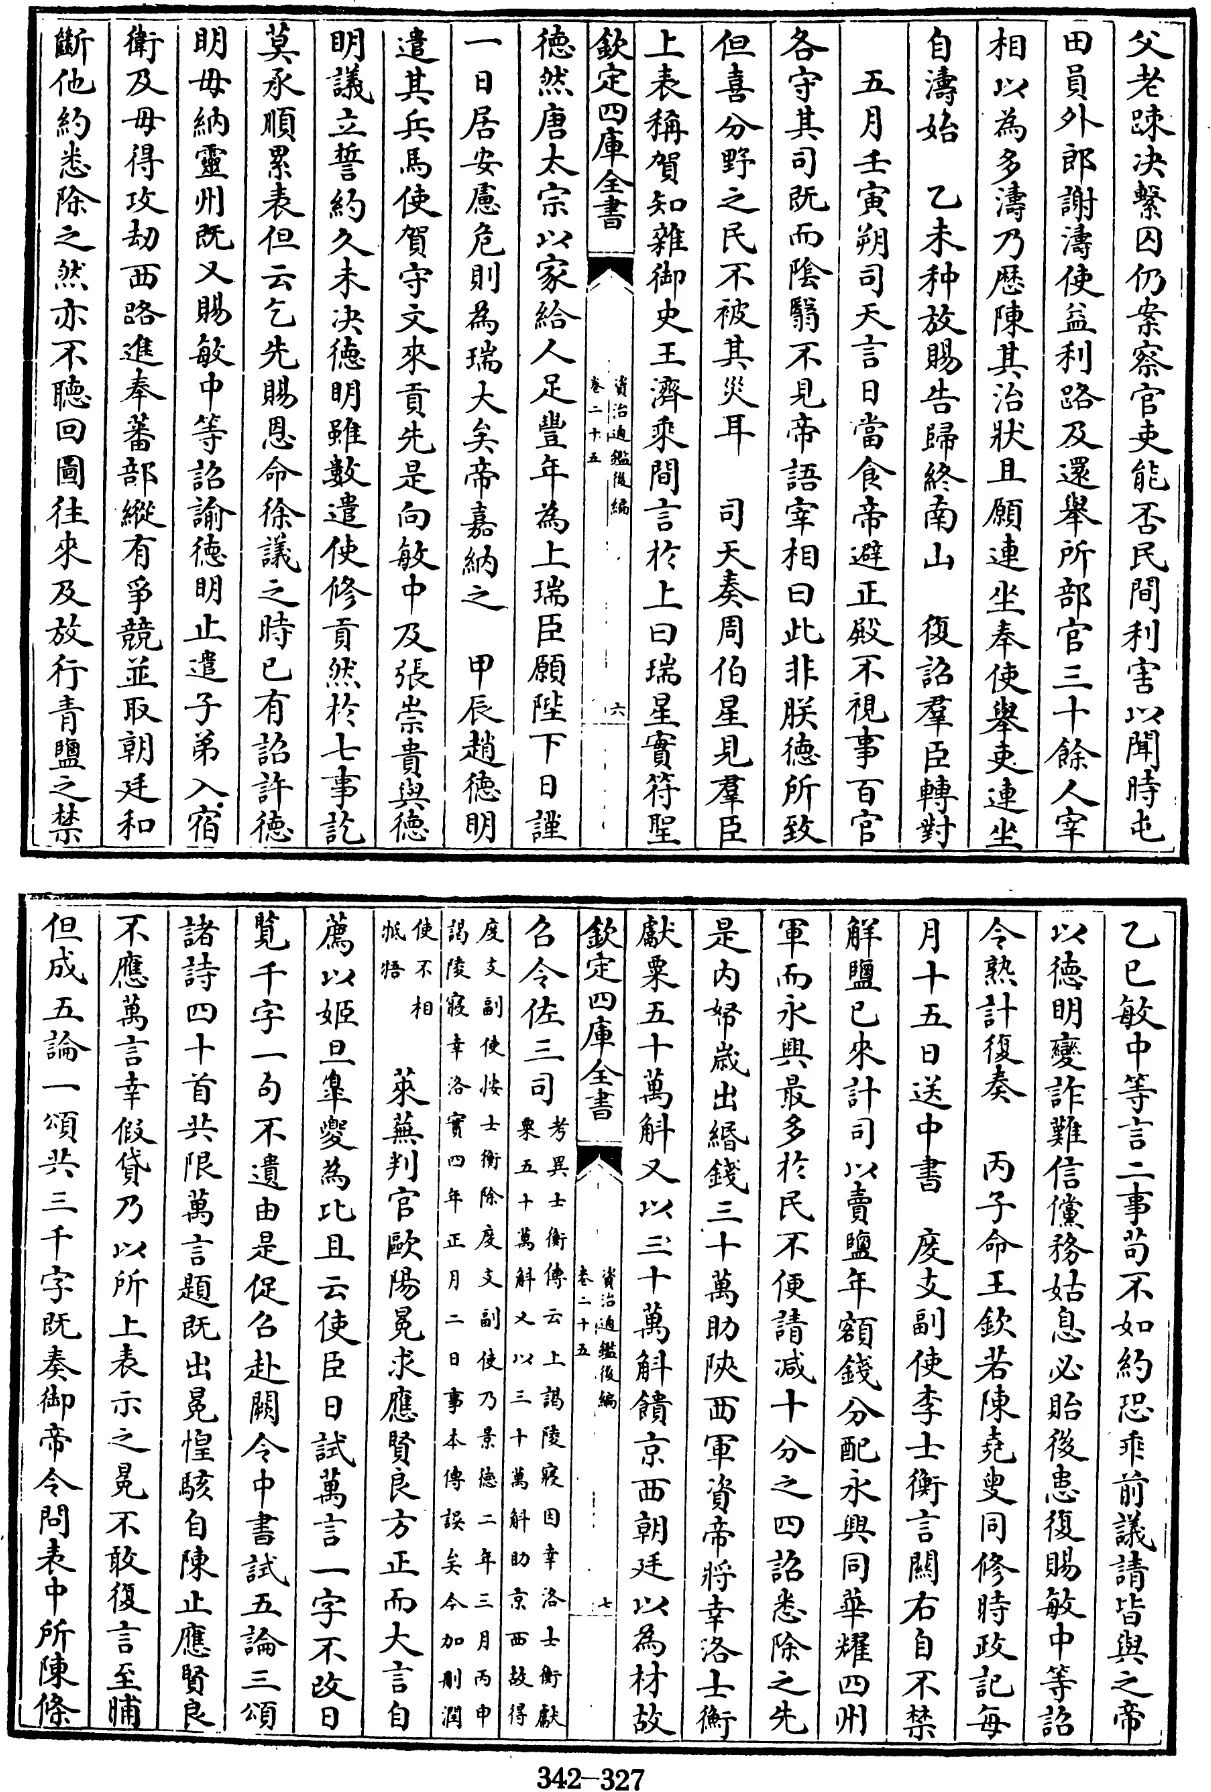 父老踈决繫囚仍案察官吏能否民間利害以聞時屯
田員外郎謝濤使益利路及還舉所部官三十餘人宰
相以為多濤乃歴陳其治狀且願連坐奉使舉吏連坐
自濤始　乙未种放賜告歸終南山　復詔羣臣轉對
五月壬寅朔司天言日當食帝避正殿不視事百官
各守其司既而陰翳不見帝語宰相曰此非朕徳所致
但喜分野之民不被其災耳　司天奏周伯星見羣臣
上表稱賀知雜御史王濟乘間言於上曰瑞星實符聖
欽定四庫全書
資治通鑑後編
卷二十五
六
徳然唐太宗以家給人足豐年為上瑞臣願陛下日謹
一日居安慮危則為瑞大矣帝嘉納之　甲辰趙徳明
遣其兵馬使賀守文來貢先是向敏中及張崇貴與徳
明議立誓約久未决徳明雖數遣使修貢然於七事訖
莫承順累表但云乞先賜恩命徐議之時已有詔許徳
明毋納靈州既又賜敏中等詔諭徳明止遣子弟入宿
衛及毋得攻刼西路進奉蕃部縱有爭競並取朝廷和
斷他約悉除之然亦不聽回圖往來及放行青鹽之禁
乙已敏中等言二事茍不如約恐乖前議請皆與之帝
以徳明變詐難信儻務姑息必貽後患復賜敏中等詔
令熟計復奏　丙子命王欽若陳堯叟同修時政記每
月十五日送中書　度支副使李士衡言關右自不禁
解鹽已來計司以賣鹽年額錢分配永興同華耀四州
軍而永興最多於民不便請減十分之四詔悉除之先
是内帑歳出緡錢三十萬助陜西軍資帝將幸洛士衡
獻粟五十萬斛又以三十萬斛饋京西朝廷以為材故
欽定四庫全書
資治通鑑後編
卷二十五
七
召令佐三司
考異士衡傳云上謁陵寢因幸洛士衡獻
粟五十萬斛又以三十萬斛助京西故得
度支副使按士衡除度支副使乃景徳二年三月丙申
謁陵寢幸洛實四年正月二日事本傳誤矣今加刪潤
使不相
牴牾
萊蕪判官歐陽冕求應賢良方正而大言自
薦以姬旦臯夔為比且云使臣日試萬言一字不改日
覧千字一句不遺由是促召赴闕令中書試五論三頌
諸詩四十首共限萬言題既出冕惶駭自陳止應賢良
不應萬言幸假貸乃以所上表示之冕不敢復言至晡
但成五論一頌共三千字既奏御帝令問表中所陳條
342-327